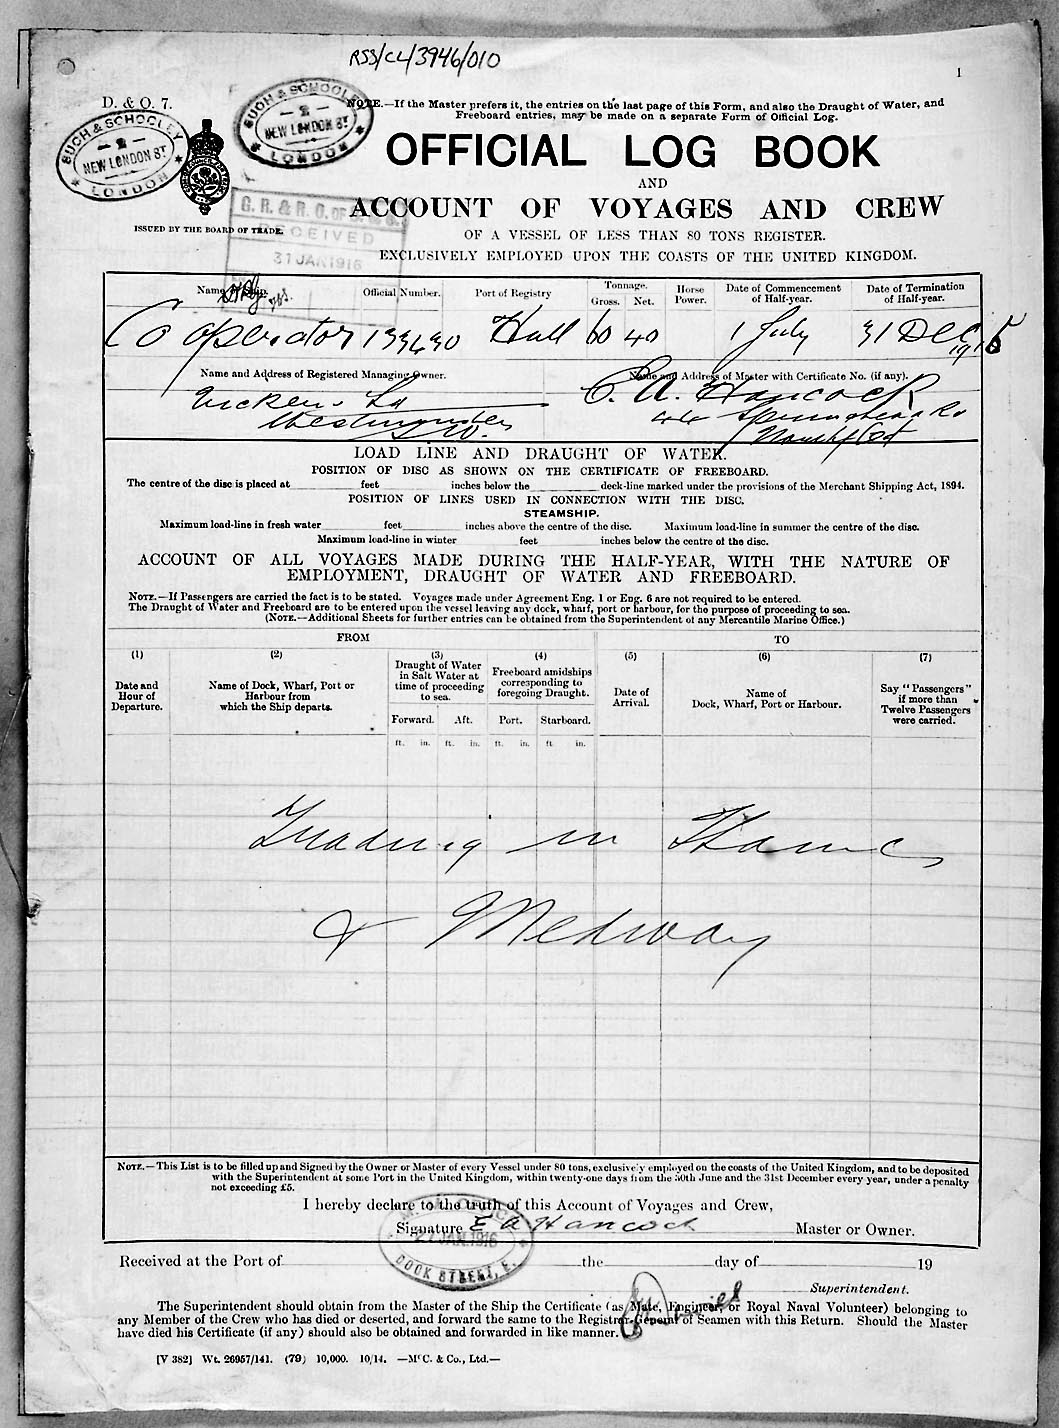 RSS/CL/3946/010
1
D. & O. 7.
NOTE.—If the Master prefers it, the entries on the last page of this Form, and also the Draught of Water, and
Freeboard entries, may be made on a separate Form of Official Log.
SUCH & SCHOOLEY
2
NEW LONDON ST
LONDON
SUCH & SCHOOLEY
2
NEW LONDON ST.
LONDON
OFFICIAL LOG BOOK
AND
ACCOUNT OF VOYAGES AND CREW
OF A VESSEL OF LESS THAN 80 TONS REGISTER.
EXCLUSIVELY EMPLOYED UPON THE COASTS OF THE UNITED KINGDOM.
ISSUED BY THE BOARD OF TRADE.
G. R. & R. O. OF S. & S.
RECEIVED
31 JAN 1916
Name of Ship. Official Number. Port of Registry Tonnage. Horse Power. Date of Commencement of Half-year. Date of Termination of Half-year.
Gross. Net.
Co operator 133430 Hull 60 40 1 July 31 Dec 1915
Name and Address of Registered Managing Owner. Name and Address of Master with Certificate No. (if any).
Vickers Ld E. A. Hancock
Westminster 44
S.W. Northfleet
LOAD LINE AND DRAUGHT OF WATER.
POSITION OF DISC AS SHOWN ON THE CERTIFICATE OF FREEBOARD.
The centre of the disc is placed at feet inches below the deck-line marked under the provisions of the Merchant Shipping Act, 1894.
POSITION OF LINES USED IN CONNECTION WITH THE DISC.
STEAMSHIP.
Maximum load-line in fresh water feet inches above the centre of the disc. Maximum load-line in summer the centre of the disc.
Maximum load-line in winter feet inches below the centre of the disc.
ACCOUNT OF ALL VOYAGES MADE DURING THE HALF-YEAR, WITH THE NATURE OF
EMPLOYMENT, DRAUGHT OF WATER AND FREEBOARD.
NOTE.—If Passengers are carried the fact is to be stated. Voyages made under Agreement Eng. 1 or Eng. 6 are not required to be entered.
The Draught of Water and Freeboard are to be entered upon the vessel leaving any dock, wharf, port or harbour, for the purpose of proceeding to sea.
(NOTE.—Additional Sheets for further entries can be obtained from the Superintendent of any Mercantile Marine Office.)
FROM TO
(1) (2) (3) (4) (5) (6) (7)
Date and Hour of Departure.
Name of Dock, Wharf, Port or Harbour from which the Ship departs.
Draught of Water in Salt Water at time of proceeding to sea.
Freeboard amidships corresponding to foregoing Draught.
Date of Arrival.
Name of Dock, Wharf, Port or Harbour.
Say "Passengers" if more than Twelve Passengers were carried.
Forward. Aft. Port. Starboard.
ft. in. ft. in. ft. in. ft in.
Trading in Thames
& Medway
NOTE.—This List is to be filled up and Signed by the Owner or Master of every Vessel under 80 tons, exclusively employed on the coasts of the United Kingdom, and to be deposited
with the Superintendent at some Port in the United Kingdom, within twenty-one days from the 30th June and the 31st December every year, under a penalty
not exceeding £5.
I hereby declare to the truth of this Account of Voyages and Crew,
Signature E A Hancock Master or Owner.
27 JAN. 1916
DOCK STREET, E.
Received at the Port of the day of 19
Superintendent.
The Superintendent should obtain from the Master of the Ship the Certificate (as Mate, Engineer, or Royal Naval Volunteer) belonging to
any Member of the Crew who has died or deserted, and forward the same to the Registrar-General of Seamen with this Return. Should the Master
have died his Certificate (if any) should also be obtained and forwarded in like manner.
[V 382] Wt. 26957/141. (79) 10,000. 10/14. —McC. & Co., Ltd.—